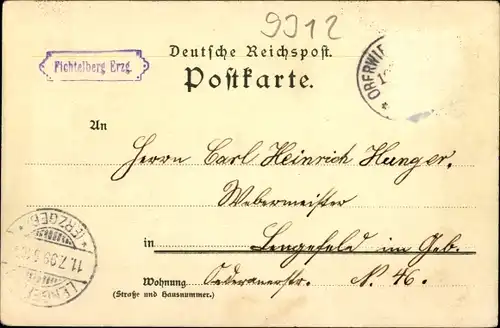 9912
Deutsche Reichspost.
Postkarte.
Fichtelberg Erzg.
OBERWIE
An
Herrn Carl Heinrich Hunger,
Webermeister
in Lengefeld im Geb.
Wohnung Oederanerstr. N. 46.
(Straße und Hausnummer.)
ERZGEB
11.7.99
LENGEF